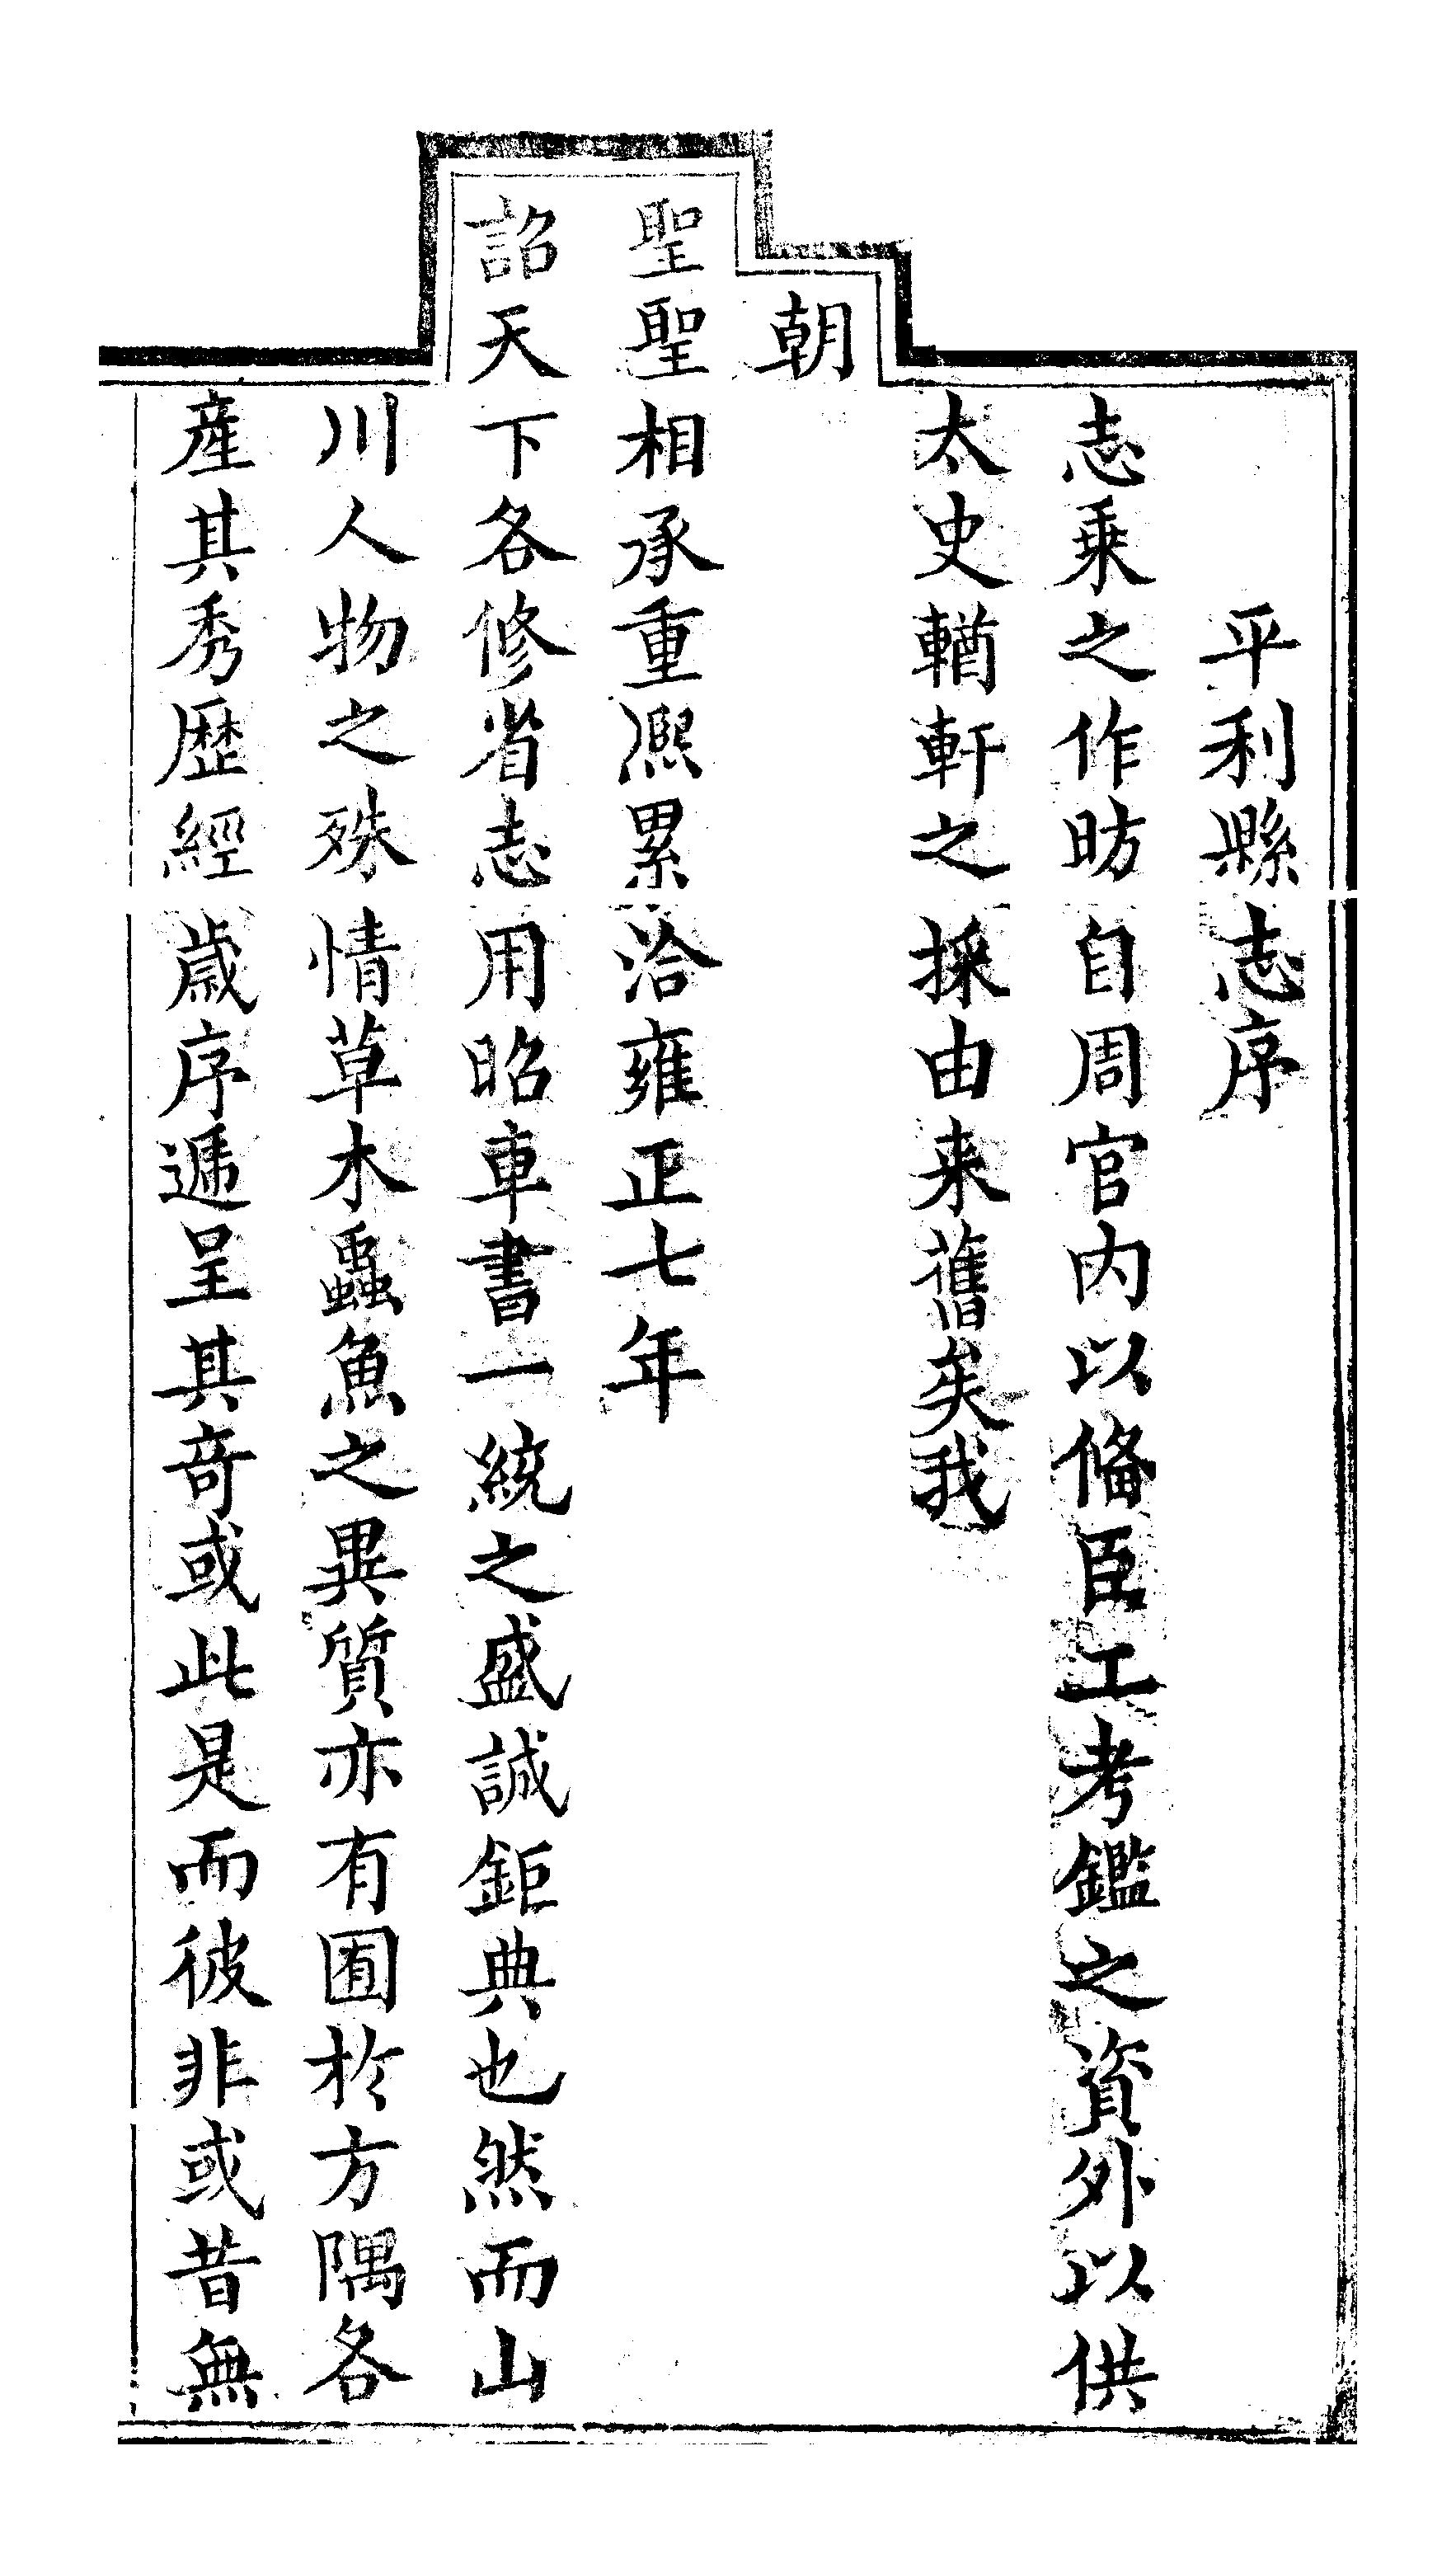 平利縣志序
志乗之作昉自周官内以俻臣工考鑑之資外以供
太史輶軒之採由来舊矣我
朝
聖聖相承重熈累洽雍正七年
詔天下各修省志用昭車書一統之盛誠鉅典也然而山
川人物之殊情草木蟲魚之異質亦有囿於方隅各
產其秀歷經歲序遞呈其竒或此是而彼非或昔無